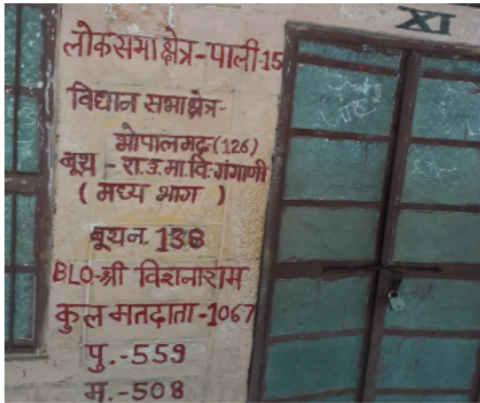 XI
लोकसभा क्षेत्र-पाली-15
विधान सभा क्षेत्र-
भोपालगढ़ (126)
बूथ - रा.उ.मा.वि. गंगाणी
( मध्य भाग )
बूथ न. 138
BLO-श्री विरानाराम
कुल मतदाता-1067
पु.-559
म.-508